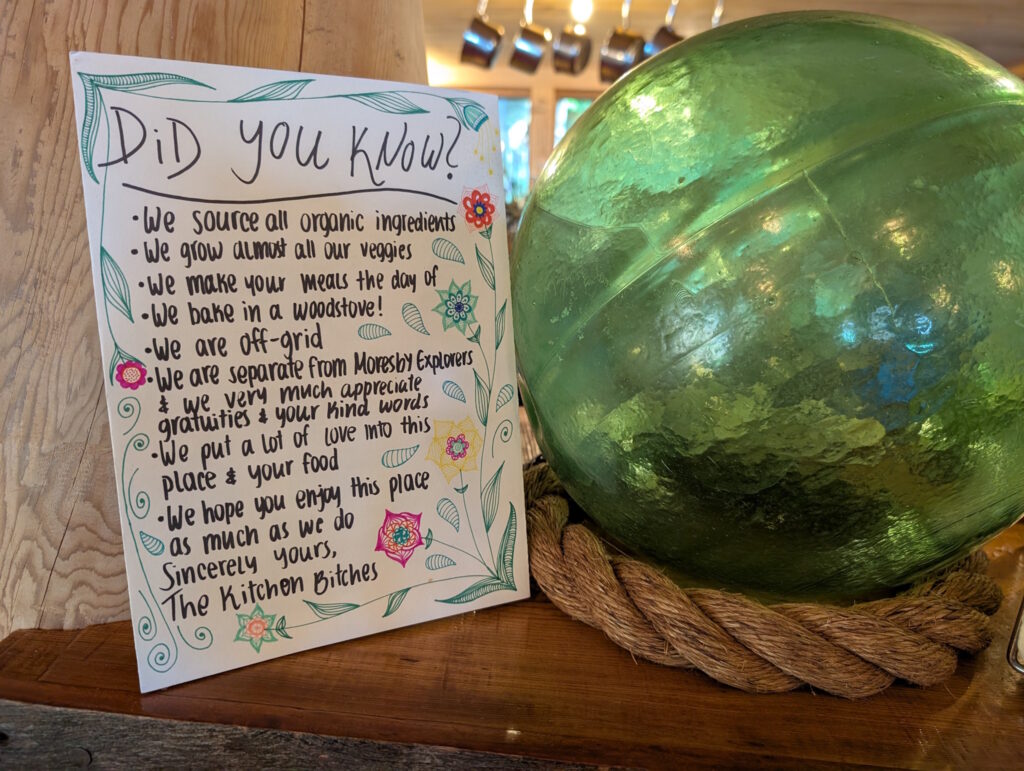 DiD YOU KNOW?
• We source all organic ingredients
• We grow almost all our veggies
• We make your meals the day of
• We bake in a woodstove!
• We are off-grid
• We are separate from Moresby Explorers
& we very much appreciate
gratuities & your kind words
• We put a lot of love into this
place & your food
• We hope you enjoy this place
as much as we do
Sincerely yours,
The Kitchen Bitches